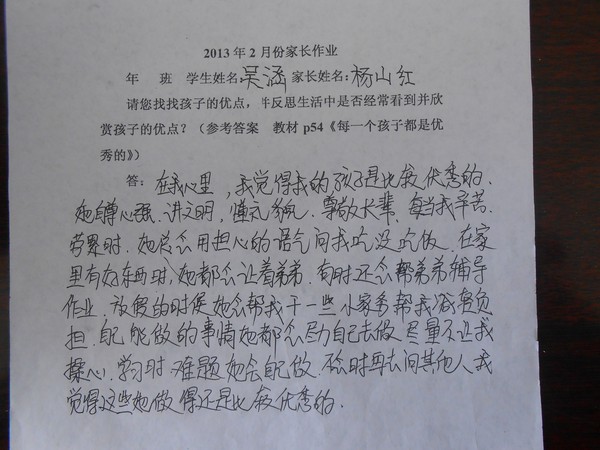 2013年2月份家长作业
年 班 学生姓名:吴涵 家长姓名:杨山红
请您找找孩子的优点，并反思生活中是否经常看到并欣
赏孩子的优点？（参考答案 教材p54《每一个孩子都是优
秀的》）
答：在我心里，我觉得我的孩子是比较优秀的.
她自尊心强.讲文明,懂礼貌.尊敬长辈.每当我辛苦.
劳累时.她总会用担心的语气问我吃没吃饭.在家
里有好东西时,她都会让着弟弟.有时还会帮弟弟辅导
作业.放假的时候她会帮我干一些小家务帮我减轻负
担.自己能做的事情她都会尽力自己去做尽量不让我
操心.学习时难题她会自己做.不会时再去问其他人我
觉得这些她做得还是比较优秀的.